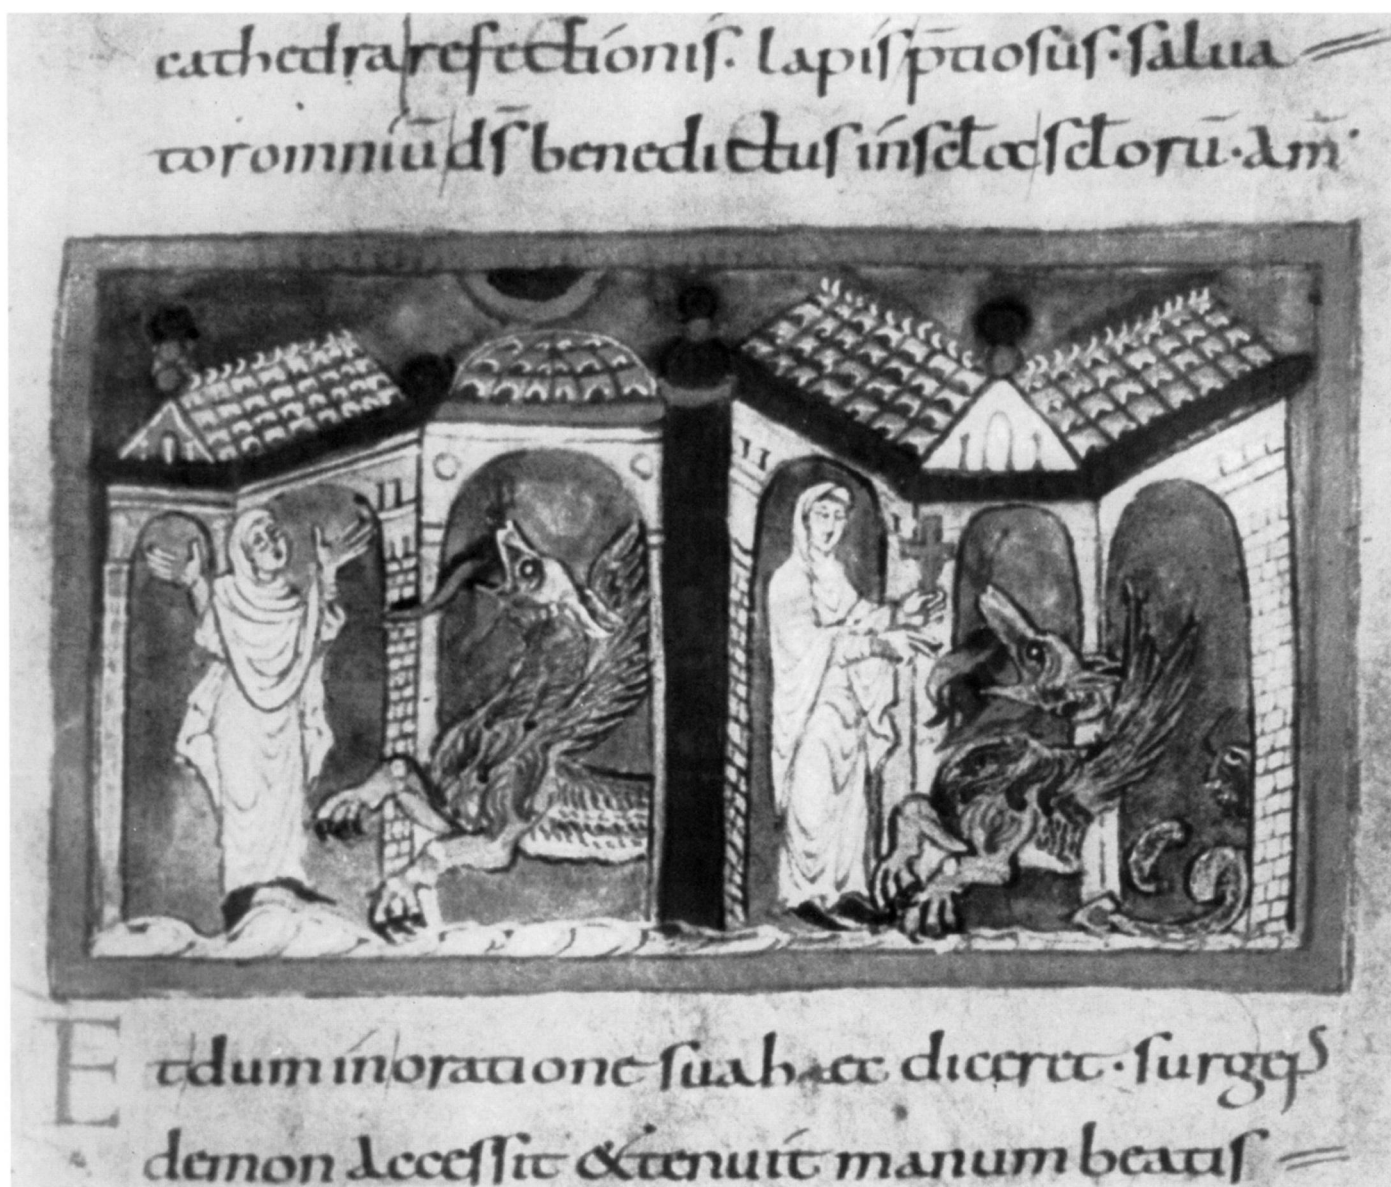 cathedra refectionis. lapis p̄tiosus. salua
tor omniū ds̄ benedictus in scl̄a scl̄orū. am̄
Et dum in oratione sua hæc diceret. surgeꝰ
demon accessit & tenuit manum beatis